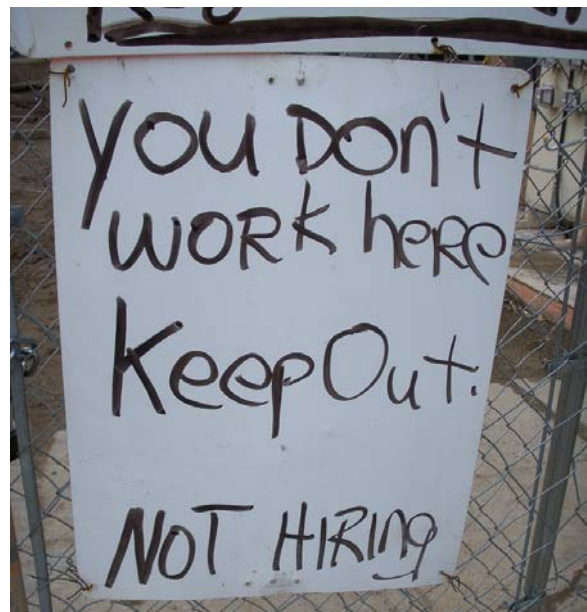 YOU DON't
WORK here
Keep Out.
NOT HIRING